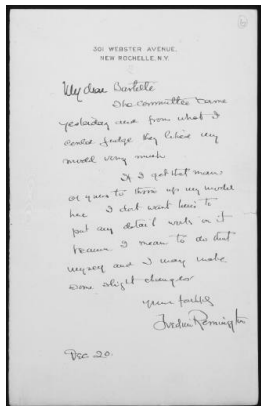 301 WEBSTER AVENUE,
NEW ROCHELLE, N.Y.
My dear Bartlett
The committee came
yesterday and from what I
could judge they liked my
model very much
If I get that man
of yours to throw up my model
here I don't want him to
put any detail work in it
because I mean to do that
myself and I may make
some slight changes
Yours faithfully
Frederic Remington
Dec. 20.